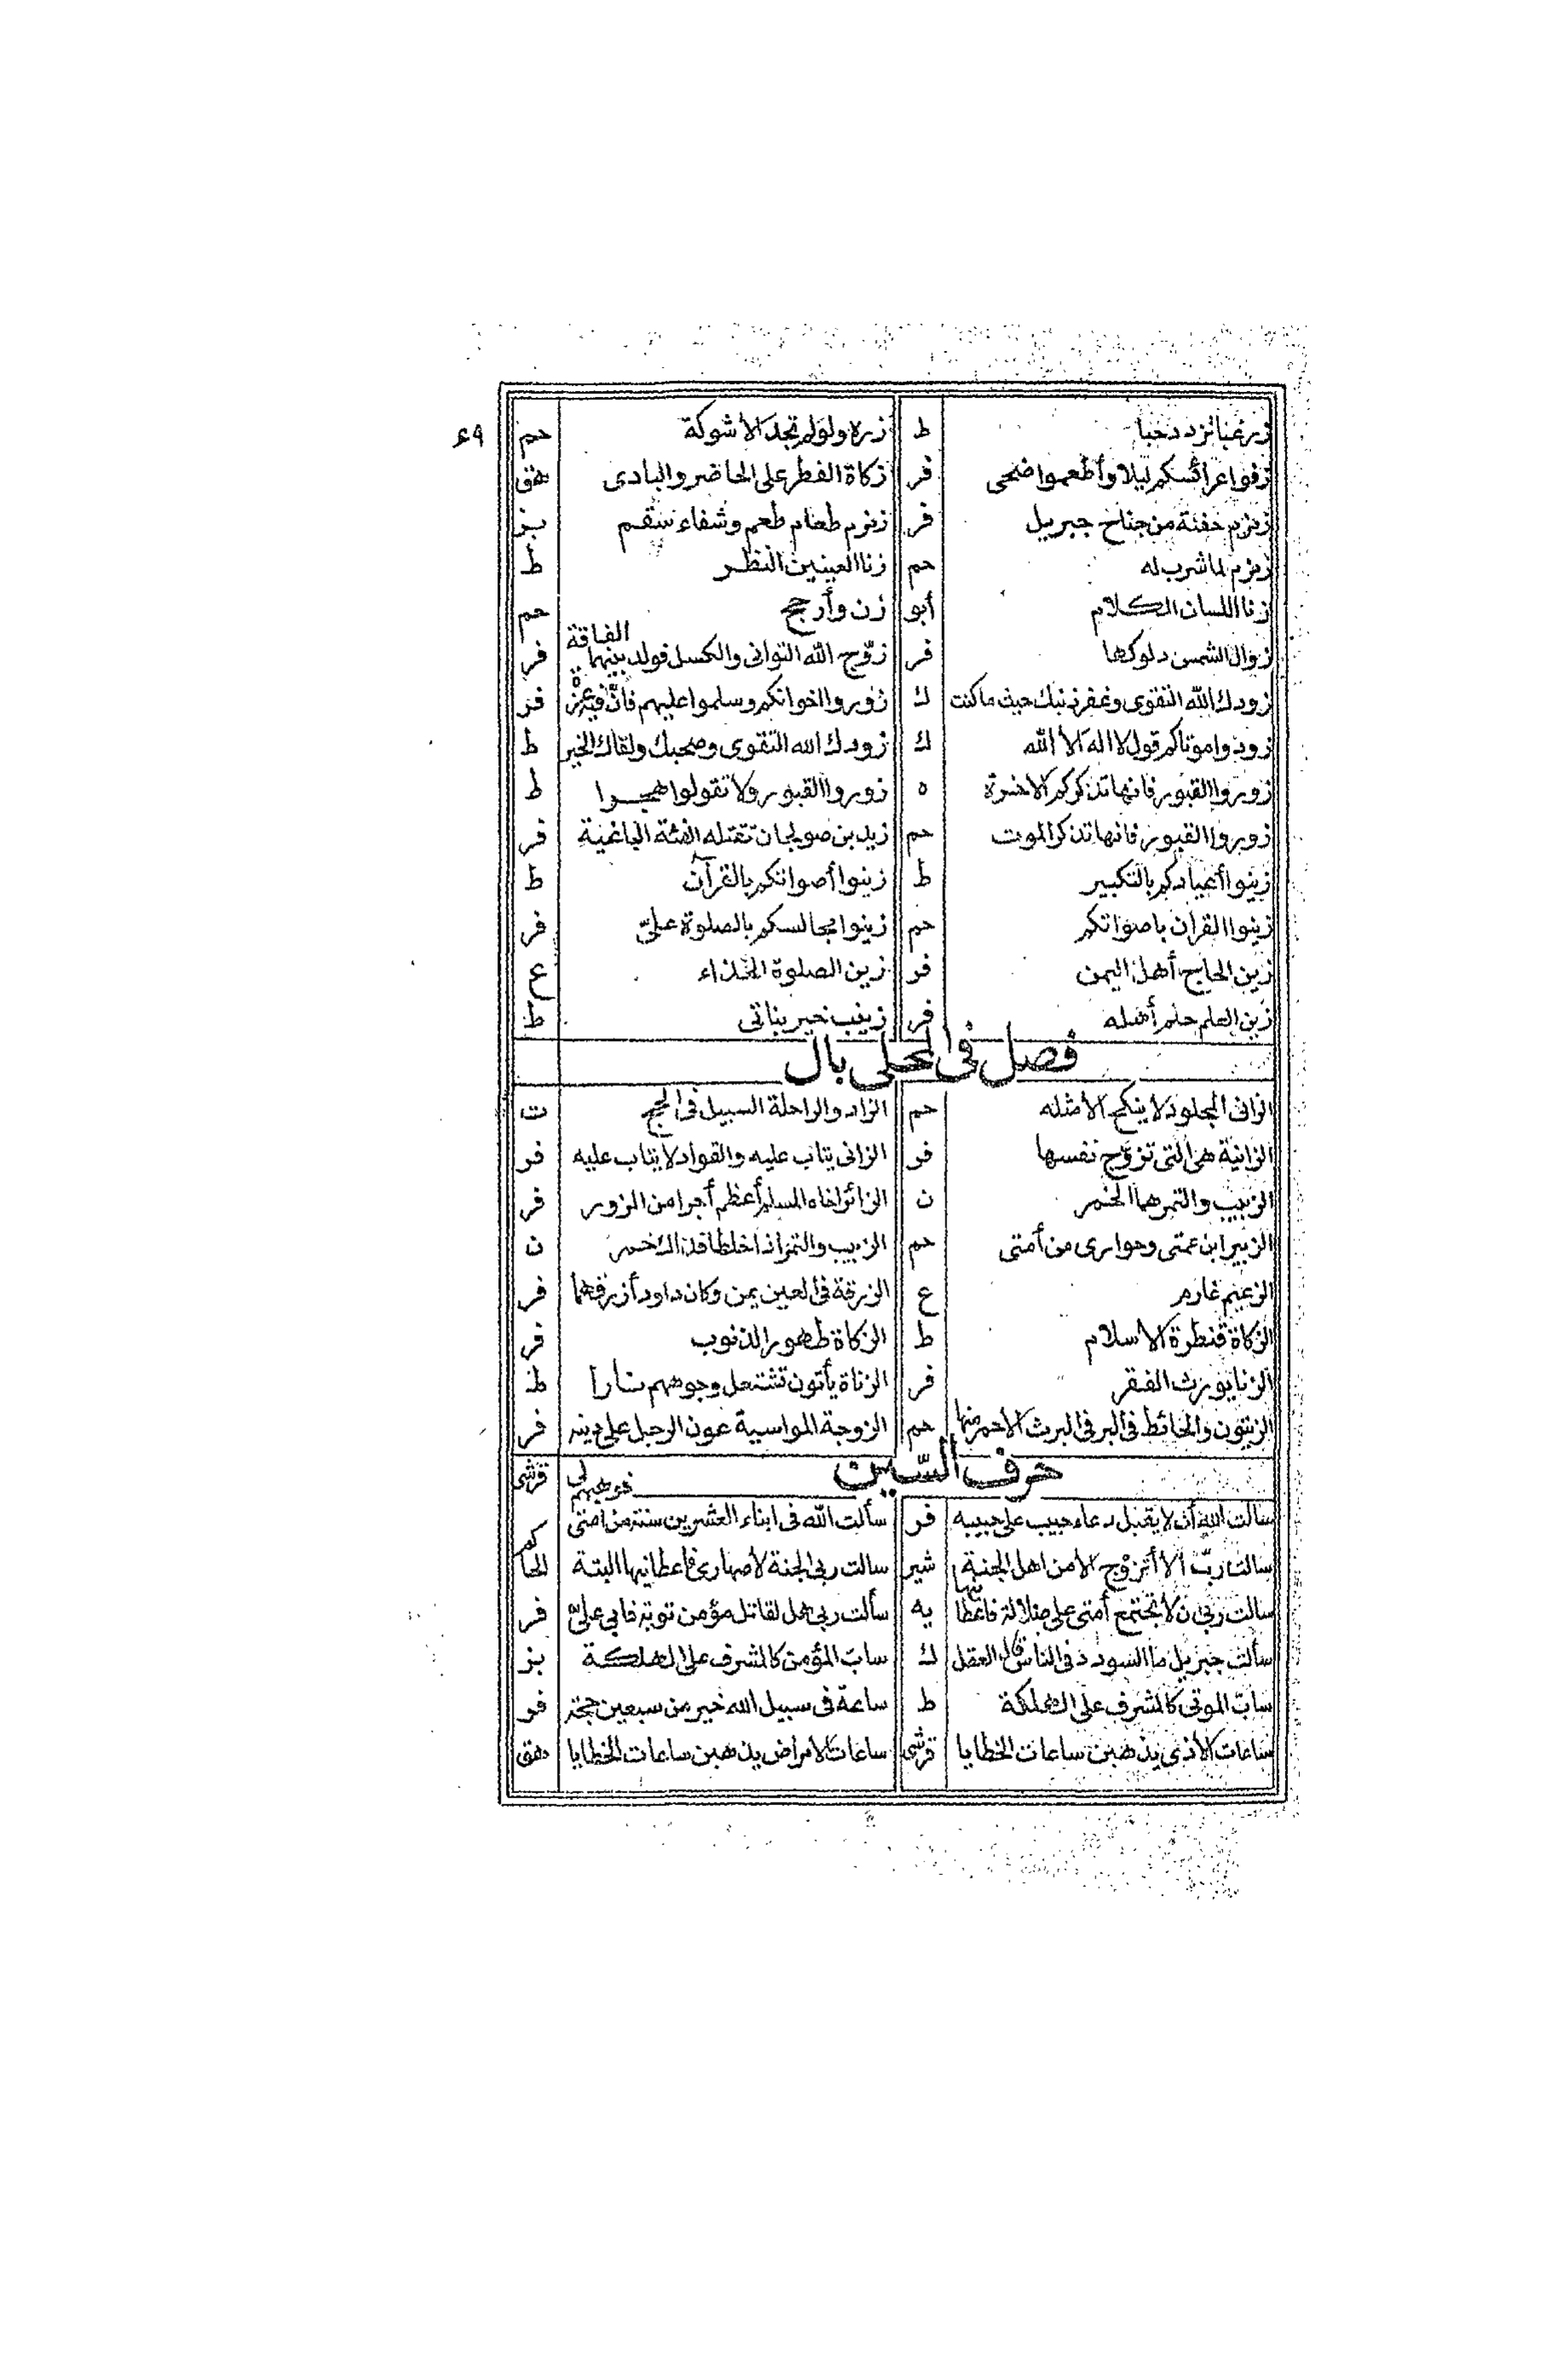 ٤٩
زر غبا تزدد حبا ط زره ولو لم تجد الا شوكة حم
زفوا عرائسكم ليلا وأطعموا ضحى فر زكاة الفطر على الحاضر والبادى هق
زمزم حفنة من جناح جبريل فر زمزم طعام طعم وشفاء سقم بز
زمزم لما شرب له حم زنا العينين النظر ط
زنا اللسان الكلام أبو زن وأرجح حم
زوال الشمس دلوكها فر زوّج الله التوانى والكسل فولد بينهما الفاقة فر
زودك الله التقوى وغفر ذنبك حيث ما كنت ك زوروا اخوانكم وسلموا عليهم فانّ فيهم فر
زودوا موتاكم قول لا اله الا الله ك زودك الله التقوى وصحبك ولقاك الخير ط
زوروا القبور فانها تذكركم الاخرة ه زوروا القبور ولا تقولوا هجرا ط
زوروا القبور فانها تذكر الموت حم زيد بن صولجان تقتله الفئة الباغية فر
زينوا أعيادكم بالتكبير ط زينوا أصواتكم بالقرآن ط
زينوا القران باصواتكم حم زينوا مجالسكم بالصلوة علىّ فر
زين الحاج أهل اليمن فر زين الصلوة الحذاء ع
زين العلم حلم أهله فر زينب خير بناتى ط
فصل فى المحلى بال
الزانى المجلود لا ينكح الا مثله حم الزاد والراحلة السبيل فى الحج ت
الزانية هى التى تزوّج نفسها فر الزانى يتاب عليه والقواد لا يتاب عليه فر
الزبيب والتمر هما الخمر ن الزائر اخاه المسلم أعظم أجرا من المزور فر
الزبير ابن عمتى وحوارى من أمتى حم الزبيب والتمر اذا خلطا فذلك خمر ن
الزعيم غارم ع الزرقة فى العين يمن وكان داود أزرقهما فر
الزكاة قنطرة الاسلام ط الزكاة طهور الذنوب فر
الزنا يورث الفقر فر الزناة يأتون تشتعل وجوههم نارا ط
الزيتون والحائط فى البر فى البرث الاحمر منها حم الزوجة المواسية عون الرجل على دينه فر
حرف السّين
فوهبهم لى قرشى
سالت الله أن لا يقبل دعاء حبيب على حبيبه فر سألت الله فى ابناء العشرين سنة من امتى
سالت ربّى الا أتزوّج الا من اهل الجنة شير سالت ربى الجنة لاصهارى فاعطانيها البتة الحاكم
سالت ربى ان لا تجتمع أمتى على ضلالة فاعطانيها يه سألت ربى هل لقاتل مؤمن توبة فابى علىّ فر
سألت جبريل ما السودد فى الناس قال العقل ك سابّ المؤمن كالمشرف على الهلكة بز
سابّ الموتى كالمشرف على الهلكة ط ساعة فى سبيل الله خير من سبعين حجة فر
ساعات الاذى يذهبن ساعات الخطايا قرشى ساعات الامراض يذهبن ساعات الخطايا هق